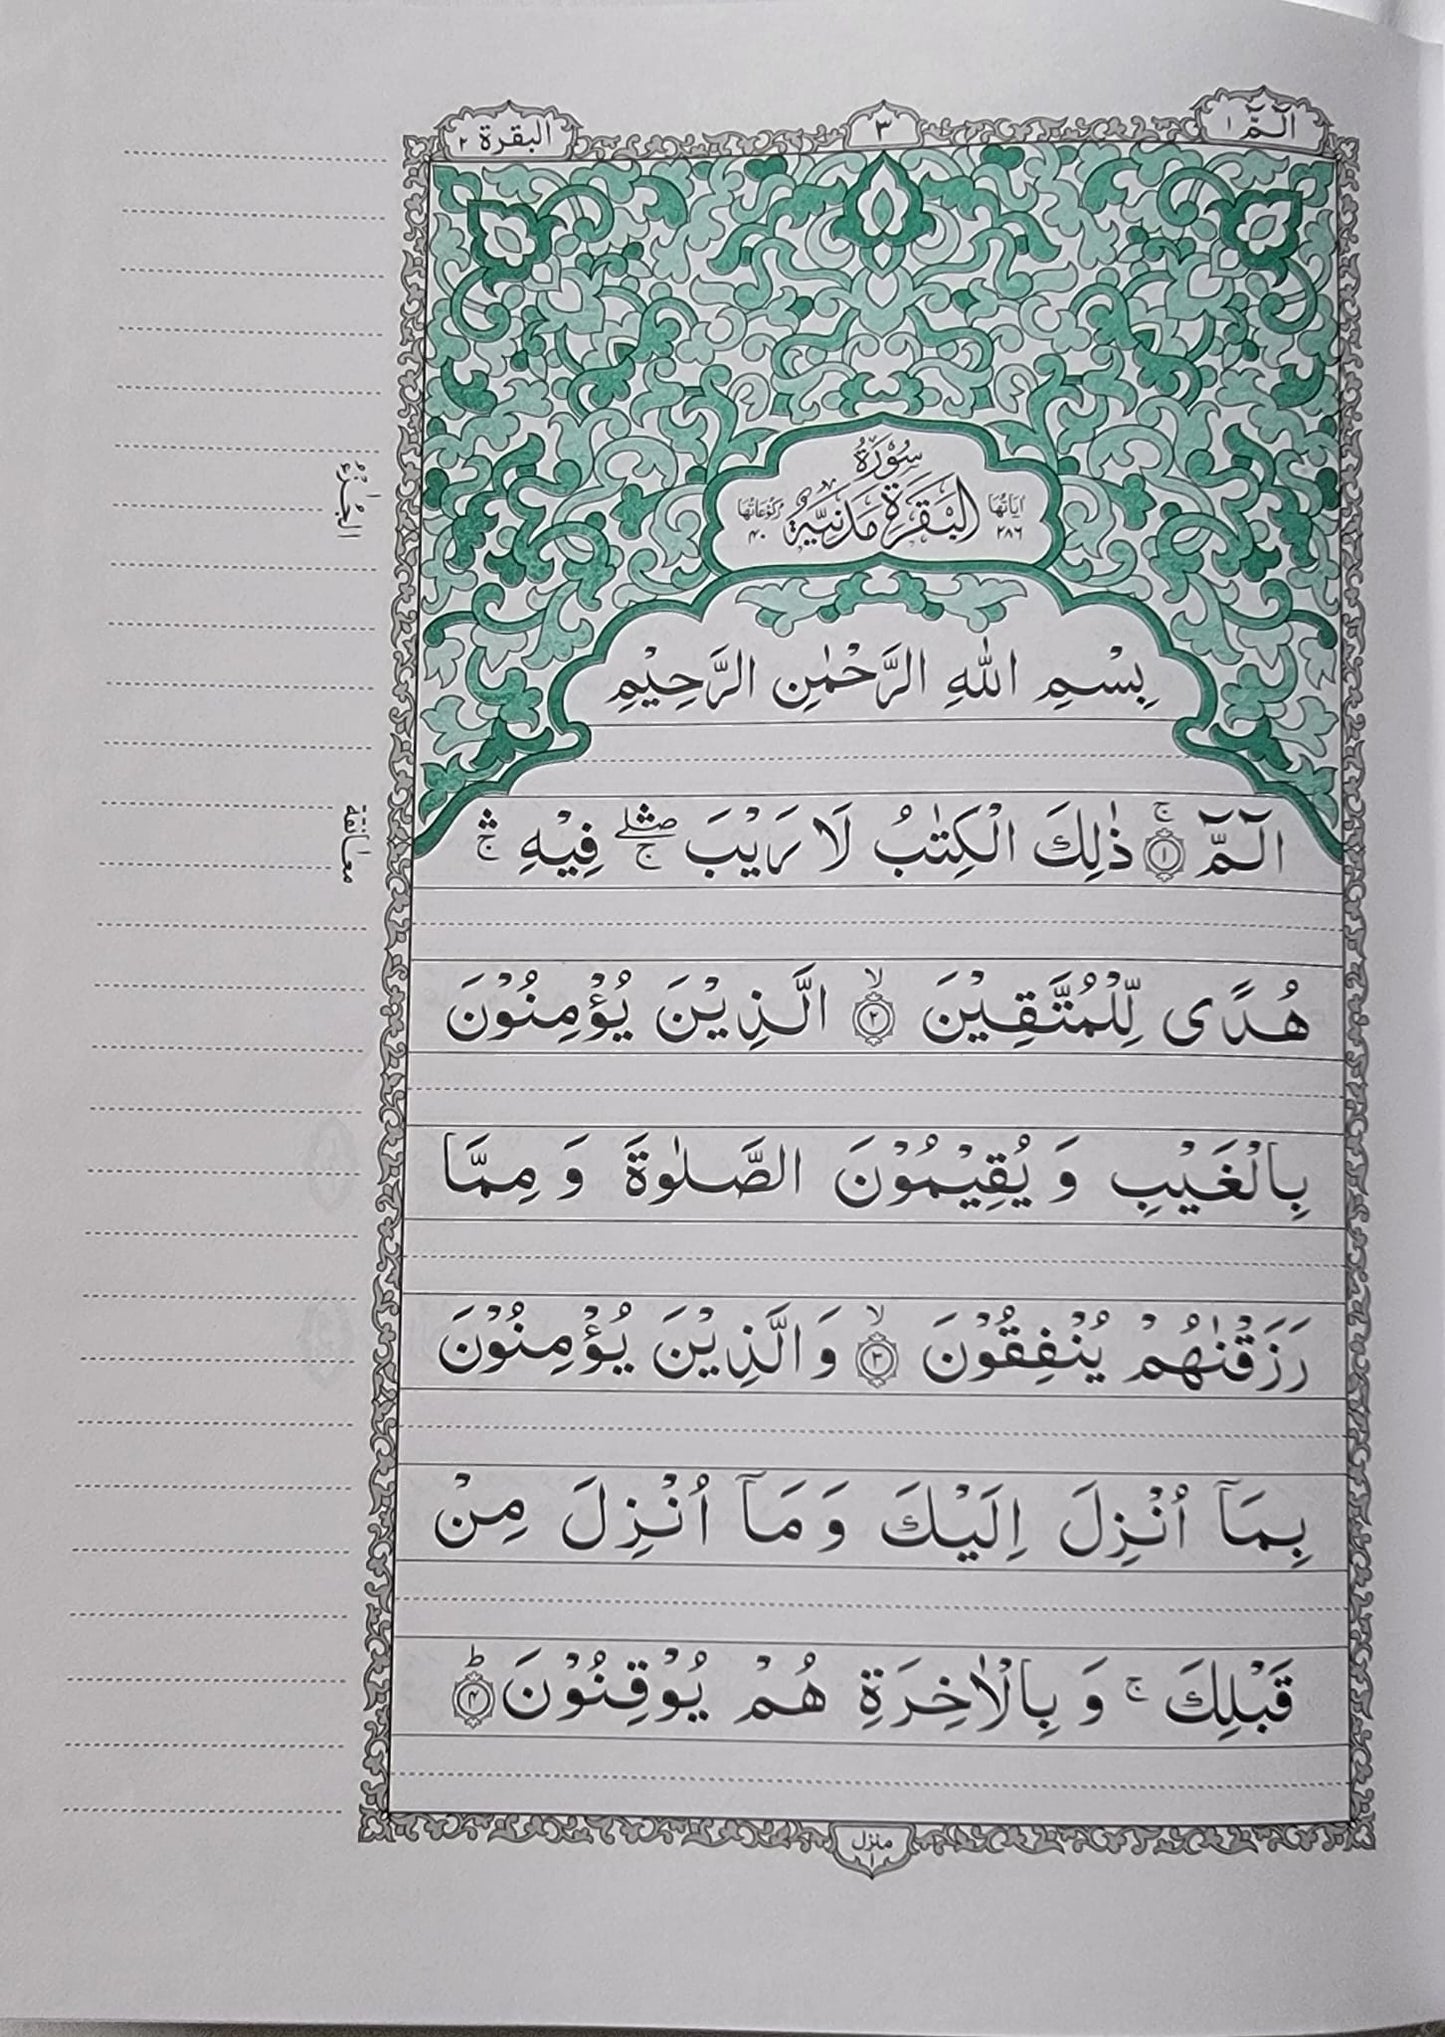 الٓمّٓ ١
٣
البقرة ٢
سُوْرَةُ
اٰيَاتُهَا ٢٨٦
الْبَقَرَةِ مَدَنِيَّةٌ
رُكُوْعَاتُهَا ٤٠
الجُزْءُ
بِسْمِ اللهِ الرَّحْمٰنِ الرَّحِيْمِ
الٓمّٓ ۚ ﴿١﴾ ذٰلِكَ الْكِتٰبُ لَا رَيْبَ ۛۖۚ فِيْهِ ۛۚ
معانقة
هُدًى لِّلْمُتَّقِيْنَ ۙ ﴿٢﴾ الَّذِيْنَ يُؤْمِنُوْنَ
بِالْغَيْبِ وَ يُقِيْمُوْنَ الصَّلٰوةَ وَ مِمَّا
رَزَقْنٰهُمْ يُنْفِقُوْنَ ۙ ﴿٣﴾ وَالَّذِيْنَ يُؤْمِنُوْنَ
بِمَآ اُنْزِلَ اِلَيْكَ وَ مَآ اُنْزِلَ مِنْ
قَبْلِكَ ۚ وَ بِالْاٰخِرَةِ هُمْ يُوْقِنُوْنَ ؕ ﴿٤﴾
منزل ١